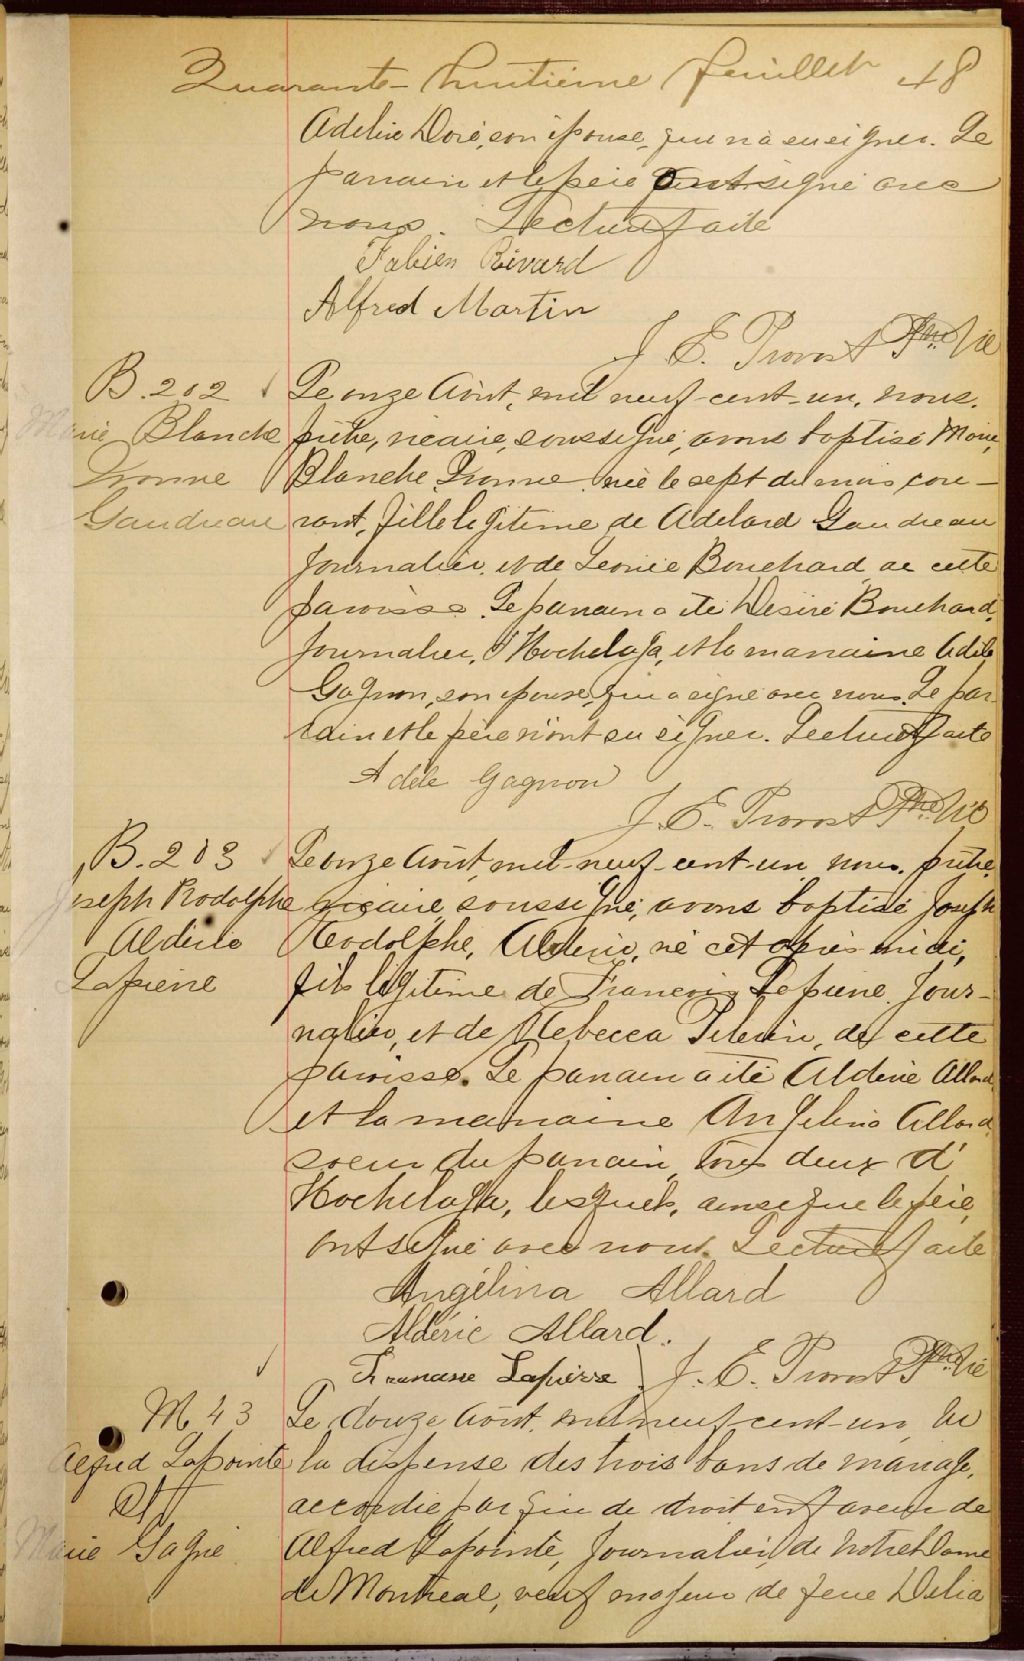 Quarante-huitième feuillet 48
Adelia Doré, son épouse, qui n'a su signer. Le
parrain et le père ont signé avec
nous. Lecture faite
Fabien Rivard
Alfred Martin
J. E. Provost Ptre Vic
B. 202 Le onze Août, mil neuf-cent-un, nous,
Marie Blanche prêtre, vicaire, soussigné, avons baptisé Marie,
Yvonne Blanche, Yvonne, née le sept du mois cou-
Gaudreau rant, fille légitime de Adelard Gaudreau
journalier, et de Leonie Bouchard, de cette
paroisse. Le parrain a été Désiré Bouchard,
journalier, d'Hochelaga, et la marraine Adèle
Gagnon, son épouse, qui a signé avec nous. Le par-
rain et le père n'ont su signer. Lecture faite
Adèle Gagnon
J. E. Provost Ptre Vic
B. 203 Le onze Août, mil-neuf-cent-un, nous, prêtre,
Joseph Rodolphe vicaire, soussigné, avons baptisé Joseph
Alderic Rodolphe, Alderic, né cet après-midi,
Lapierre fils légitime de François Lapierre, jour-
nalier, et de Rebecca Pelerin, de cette
paroisse. Le parrain a été Alderic Allard
et la marraine Angelina Allard,
soeur du parrain, tous deux d'
Hochelaga, lesquels, ainsi que le père,
ont signé avec nous. Lecture faite
Angélina Allard
Aldéric Allard.
Lapierre J. E. Provost Ptre Vic
M 43 Le douze Août, mil neuf-cent-un, vu
Alfred Lapointe la dispense des trois bans de mariage,
et accordée par qui de droit en faveur de
Marie Gagné Alfred Lapointe, journalier, de Notre Dame
de Montreal, veuf majeur de feue Delia